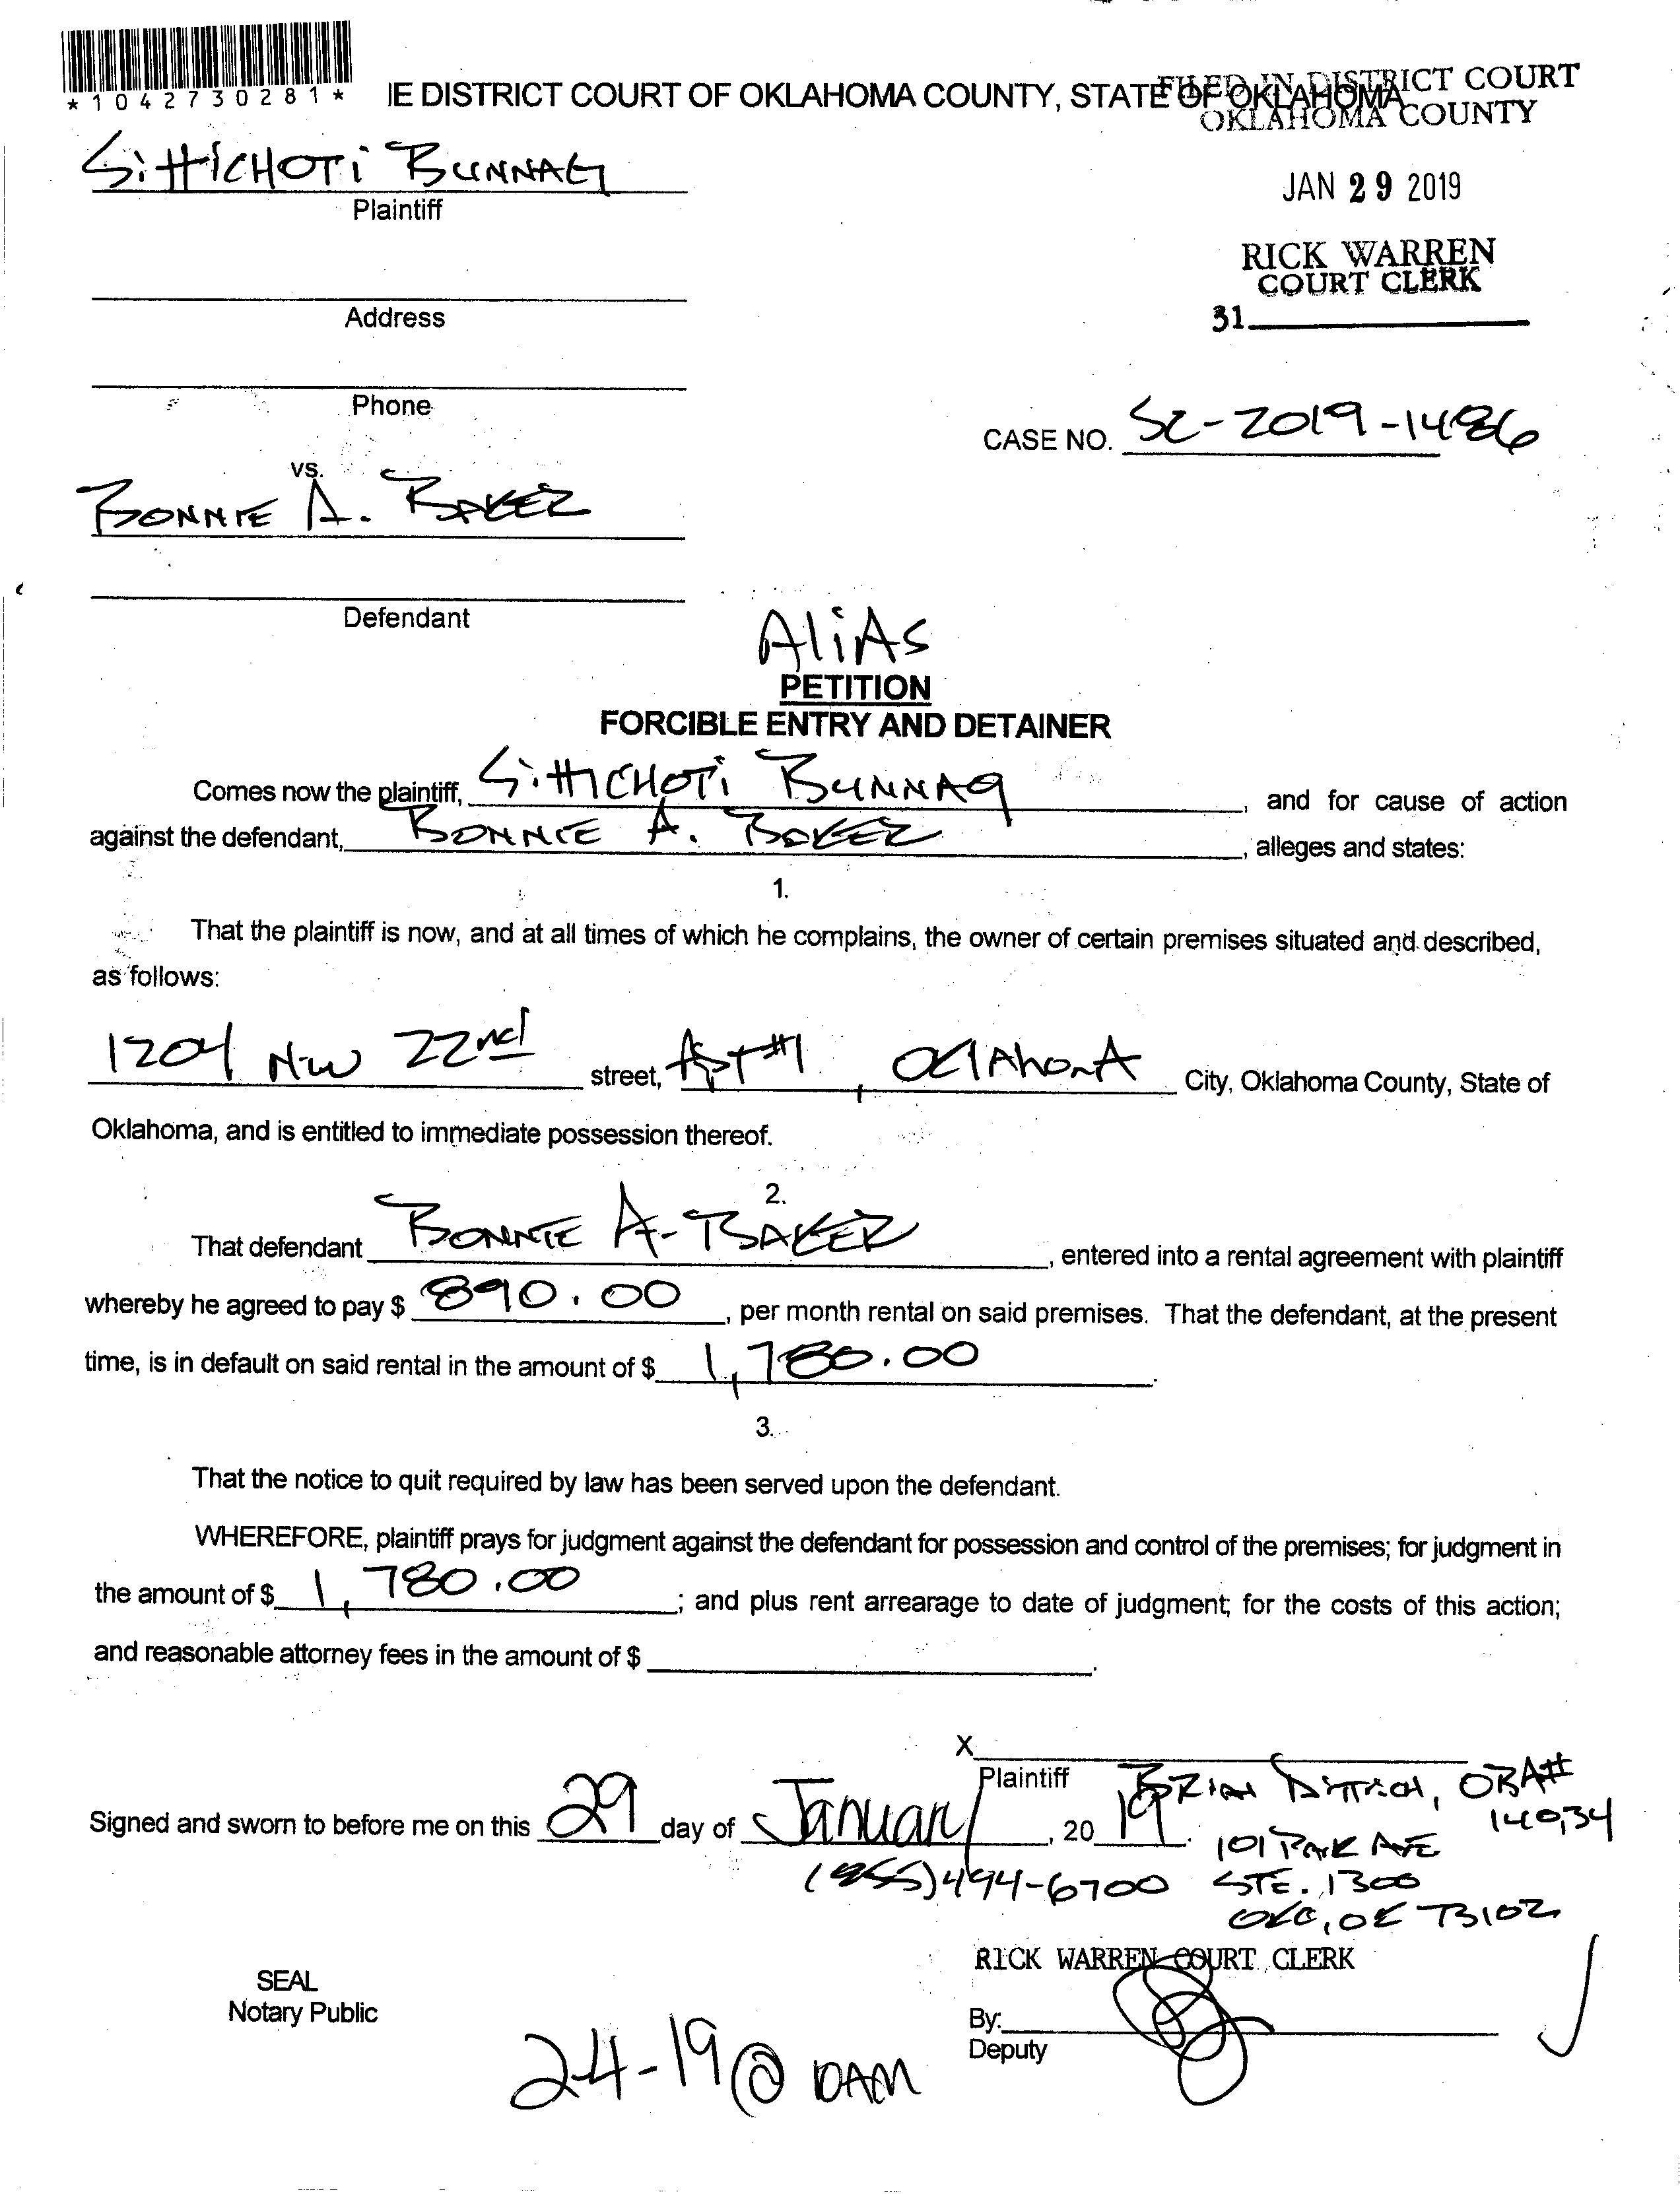 *1042730281*
IE DISTRICT COURT OF OKLAHOMA COUNTY, STATE OF OKLAHOMA
FILED IN DISTRICT COURT
OKLAHOMA COUNTY
SittiCHOTi BUNNAG
Plaintiff
JAN 29 2019
RICK WARREN
COURT CLERK
31
Address
Phone
CASE NO. SC-2019-1486
vs.
BONNIE A. BAKER
Defendant
AliAs
PETITION
FORCIBLE ENTRY AND DETAINER
Comes now the plaintiff, SittiCHOTi BUNNAG, and for cause of action
against the defendant, BONNIE A. BAKER, alleges and states:
1.
That the plaintiff is now, and at all times of which he complains, the owner of certain premises situated and described,
as follows:
1204 NW 22nd street, Apt #1, OklAhomA City, Oklahoma County, State of
Oklahoma, and is entitled to immediate possession thereof.
2.
That defendant BONNIE A. BAKER, entered into a rental agreement with plaintiff
whereby he agreed to pay $ 890.00, per month rental on said premises. That the defendant, at the present
time, is in default on said rental in the amount of $ 1,780.00.
3.
That the notice to quit required by law has been served upon the defendant.
WHEREFORE, plaintiff prays for judgment against the defendant for possession and control of the premises; for judgment in
the amount of $ 1,780.00; and plus rent arrearage to date of judgment; for the costs of this action;
and reasonable attorney fees in the amount of $
X
Plaintiff BRIAN DITTRICH, OBA#
14034
Signed and sworn to before me on this 29 day of January, 2019.
101 PARK AVE
(855)494-6700 STE. 1300
OKC, OK 73102
RICK WARREN COURT CLERK
SEAL
Notary Public
By:
Deputy
2-4-19 @ 10AM